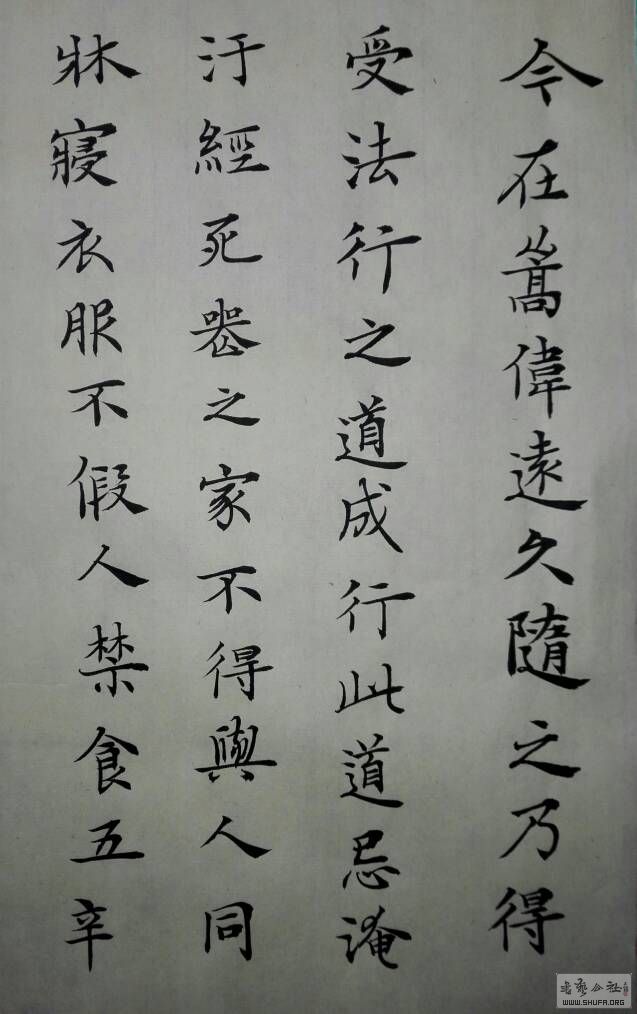 今在嵩偉遠久隨之乃得
受法行之道成行此道忌淹
汙經死喪之家不得與人同
牀寢衣服不假人禁食五辛
WWW.SHUFA.ORG